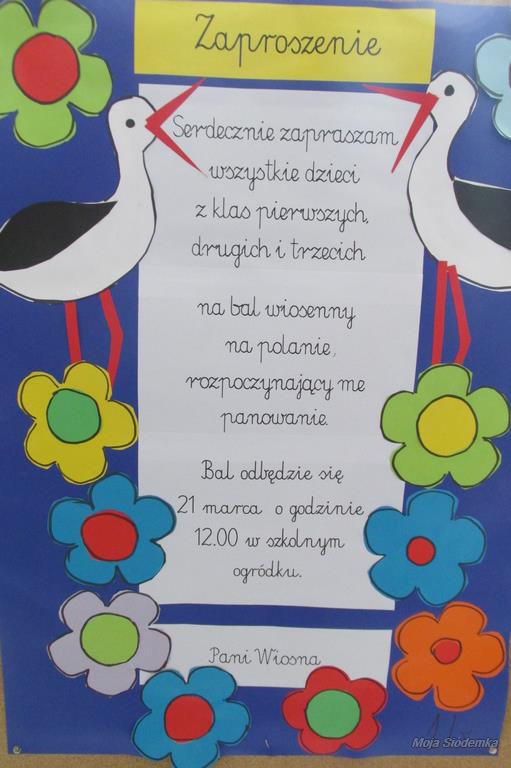 Zaproszenie
Serdecznie zapraszam
wszystkie dzieci
z klas pierwszych,
drugich i trzecich
na bal wiosenny
na polanie,
rozpoczynający me
panowanie.
Bal odbędzie się
21 marca o godzinie
12.00 w szkolnym
ogródku.
Pani Wiosna
Moja Siódemka